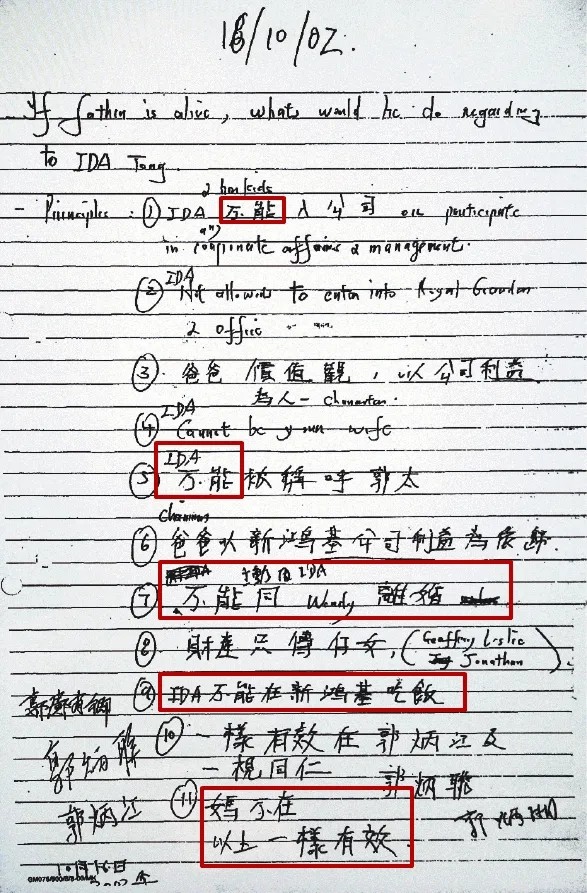 18/10/02.
If father is alive, whats would he do regarding
to IDA Tang.
2 her kids
- Principles : ① IDA 不能 入公司 or participate
any
in corporate affairs & management.
IDA
② Not allowed to enter into Royal Garden
& office
③ 爸爸 價值觀, 以公司利益
為人 - character.
IDA
④ Cannot be your wife
IDA
⑤ 不能被稱呼 郭太
⑥ 爸爸以新鴻基公司利益為依歸.
主動因IDA
⑦ 不能同 Wendy 離婚
⑧ 財產只傳仔女, (Geoffrey Leslie
Jonathan).
⑨ IDA不能在新鴻基吃飯
⑩ 一樣有效在 郭炳江及
一視同仁 郭炳聯
⑪ 媽不在
以上一樣有效.
郭炳江
10月16日